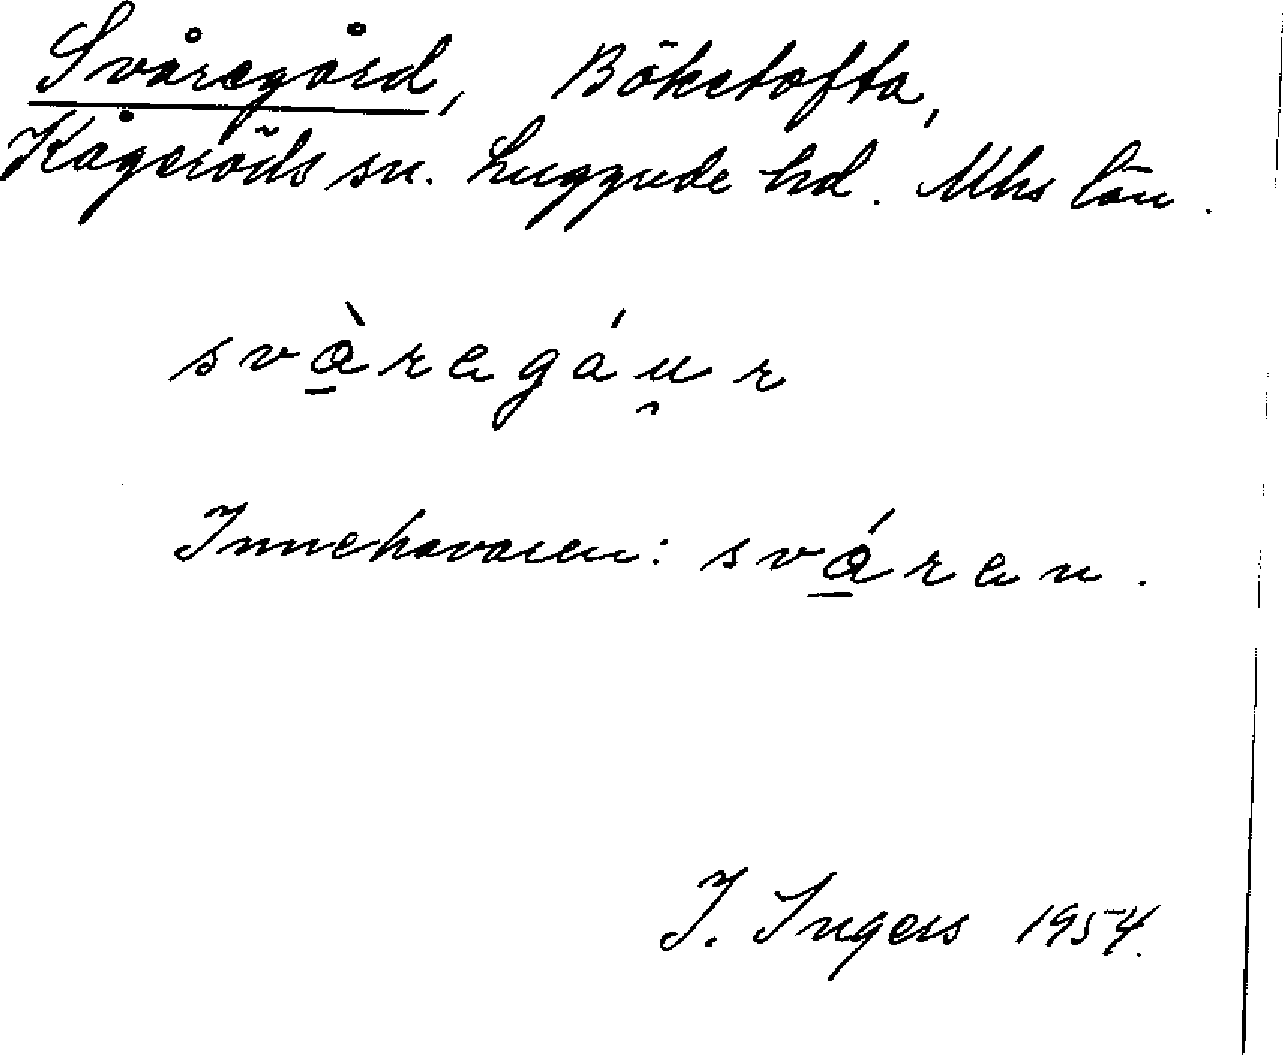 Svåregård, Böketofta,
Kågeröds sn. Luggude hd. Mhs län.
svà̱regáu̯r
Innehavaren: svá̱ren.
I. Ingers 1954.